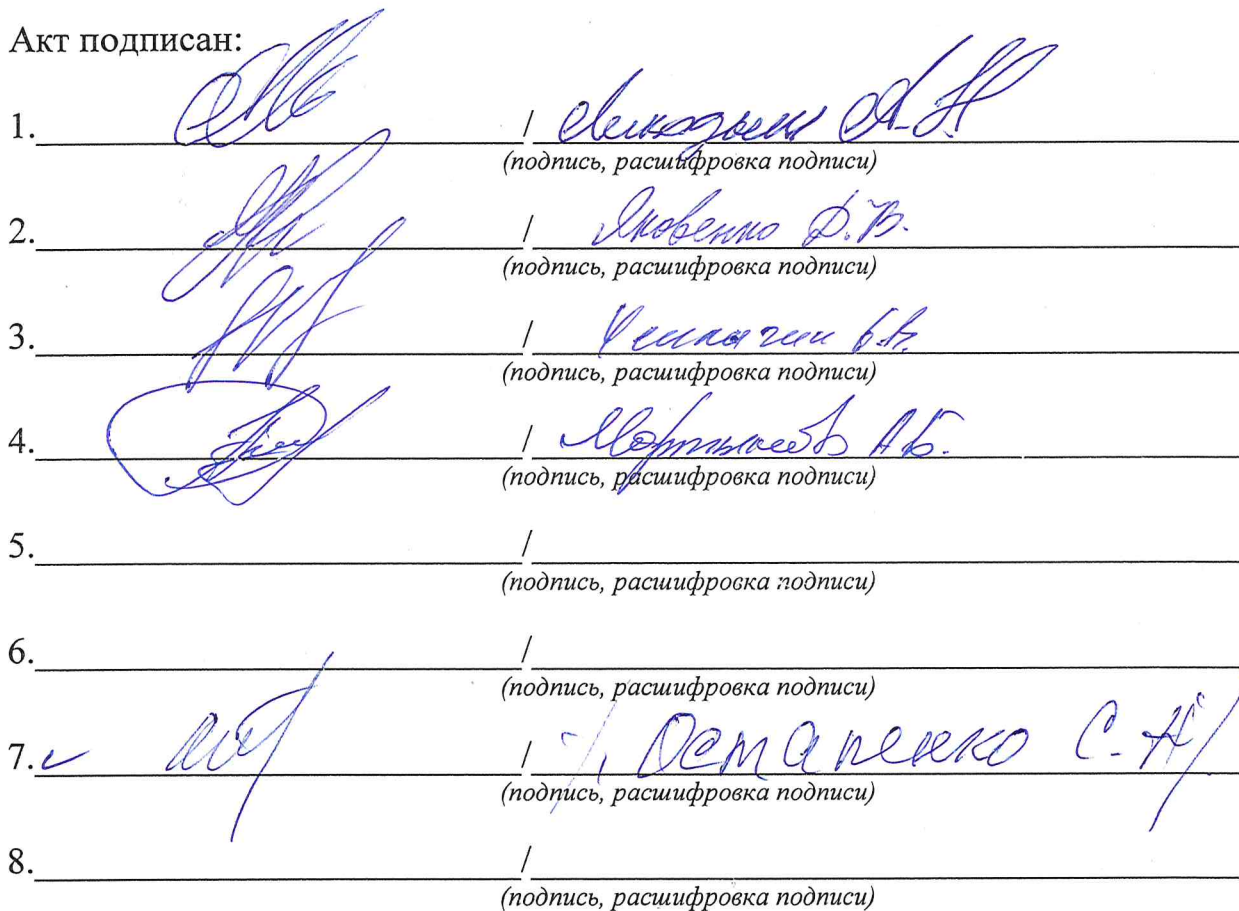 Акт подписан:
1. / А.Н
(подпись, расшифровка подписи)
2. / Яковенко Д.В.
(подпись, расшифровка подписи)
3. /
(подпись, расшифровка подписи)
4. / А.Б.
(подпись, расшифровка подписи)
5. /
(подпись, расшифровка подписи)
6. /
(подпись, расшифровка подписи)
7. / Остапенко С.Н
(подпись, расшифровка подписи)
8. /
(подпись, расшифровка подписи)